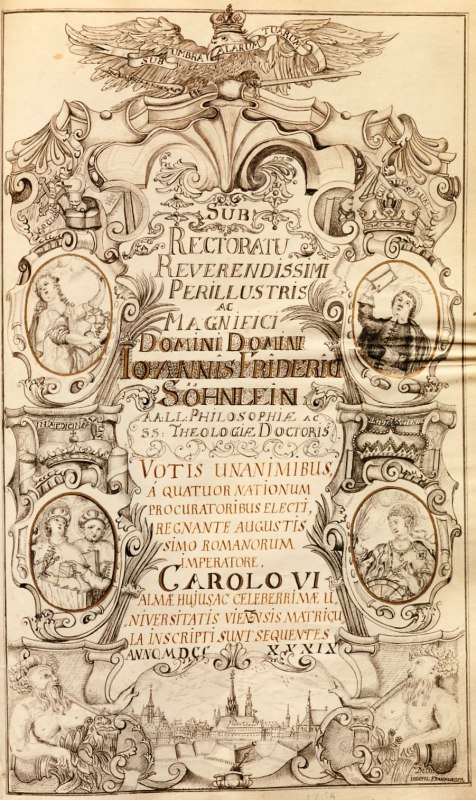 SUB UMBRA ALARUM TUARUM
SUB
RECTORATU
REVERENDISSIMI
PERILLUSTRIS
AC
MAGNIFICI
DOMINI DOMINI
IOANNIS FRIDERICI
SÖHNLEIN
AA: LL: PHILOSOPHIÆ AC
SS: THEOLOGIÆ DOCTORIS
VOTIS UNANIMIBUS
Á QUATUOR NATIONUM
PROCURATORIBUS ELECTI,
REGNANTE AUGUSTIS
SIMO ROMANORUM
IMPERATORE,
CAROLO VI
ALMÆ HUJUS AC CELEBERRIMÆ U
NIVERSITATIS VIEÑSIS MATRICU
LA INSCRIPTI SUNT SEQUENTES
ANNO MDCC XXXIX
MEDICINA